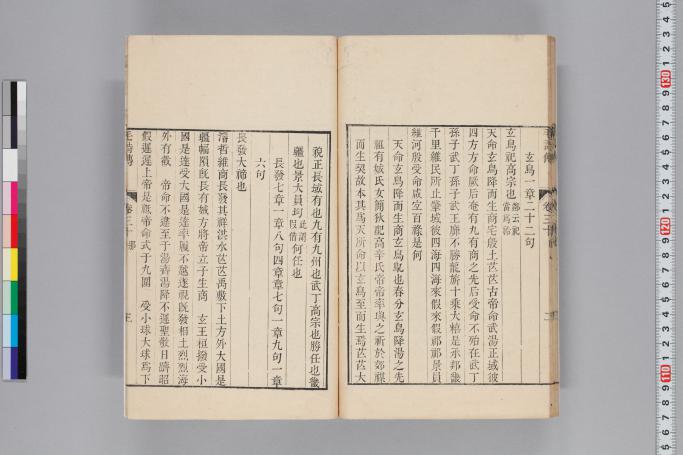 玄鳥一章二十二句
玄鳥祀高宗也鄭云祀當爲祫
天命玄鳥降而生商宅殷土芒芒古帝命武湯正域彼
四方方命厥后奄有九有商之先后受命不殆在武丁
孫子武丁孫子武王靡不勝龍旂十乘大糦是承邦畿
千里維民所止肇域彼四海四海來假來假祁祁景員
維河殷受命咸宜百祿是何
天命玄鳥降而生商玄鳥鳦也春分玄鳥降湯之先
祖有娀氏女簡狄配高辛氏帝帝率與之祈於郊禖
而生契故本其爲天所命以玄鳥至而生焉芒芒大
貌正長域有也九有九州也武丁高宗也勝任也畿
疆也景大員均何任也
長發七章一章八句四章章七句一章九句一章
六句
長發大禘也
濬哲維商長發其祥洪水芒芒禹敷下土方外大國是
疆幅隕既長有娀方將帝立子生商 玄王桓撥受小
國是達受大國是達率履不越遂視既發相土烈烈海
外有截 帝命不違至于湯齊湯降不遲聖敬日躋昭
假遲遲上帝是祗帝命式于九圍 受小球大球爲下
毛詩傳
卷三十
130
120
110